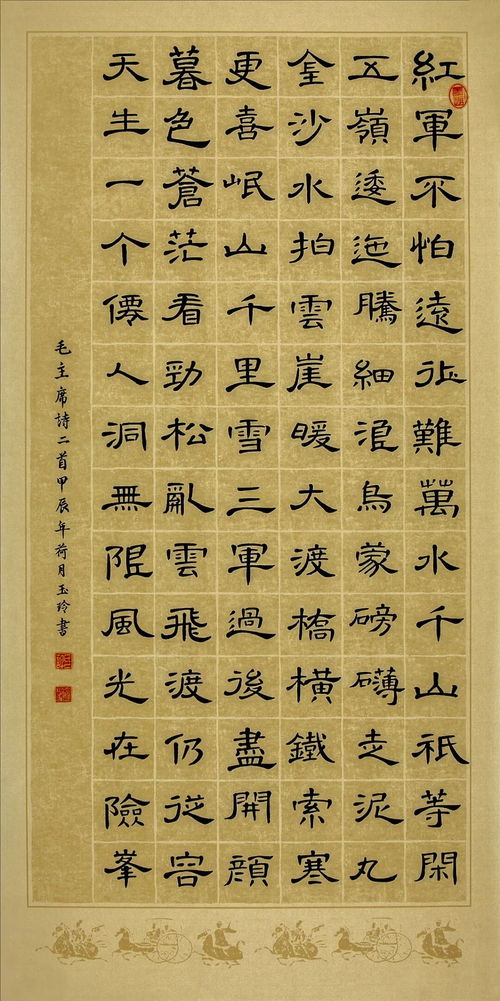 紅軍不怕遠征難萬水千山祇等閑
五嶺逶迤騰細浪烏蒙磅礴走泥丸
金沙水拍雲崖暖大渡橋橫鐵索寒
更喜岷山千里雪三軍過後盡開顏
暮色蒼茫看勁松亂雲飛渡仍從容
天生一个僊人洞無限風光在險峯
毛主席詩二首甲辰年荷月玉玲書